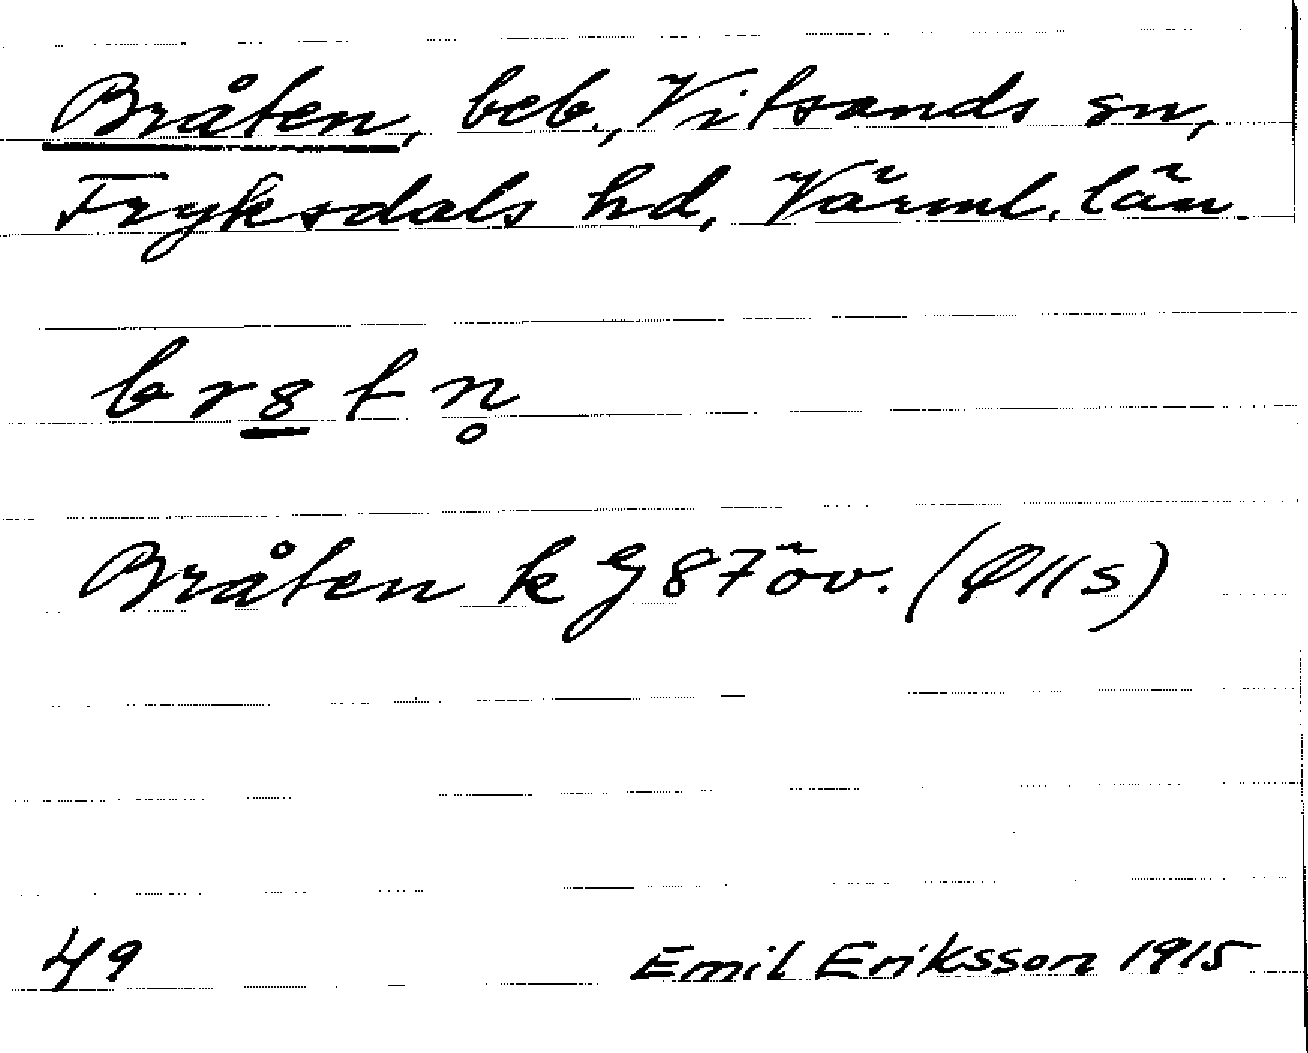 Bråten, beb., Vitsands sn,
Fryksdals hd, Värml. län.
br8tn̥
Bråten k G 87 öv. (Ø11s)
49 Emil Eriksson 1915